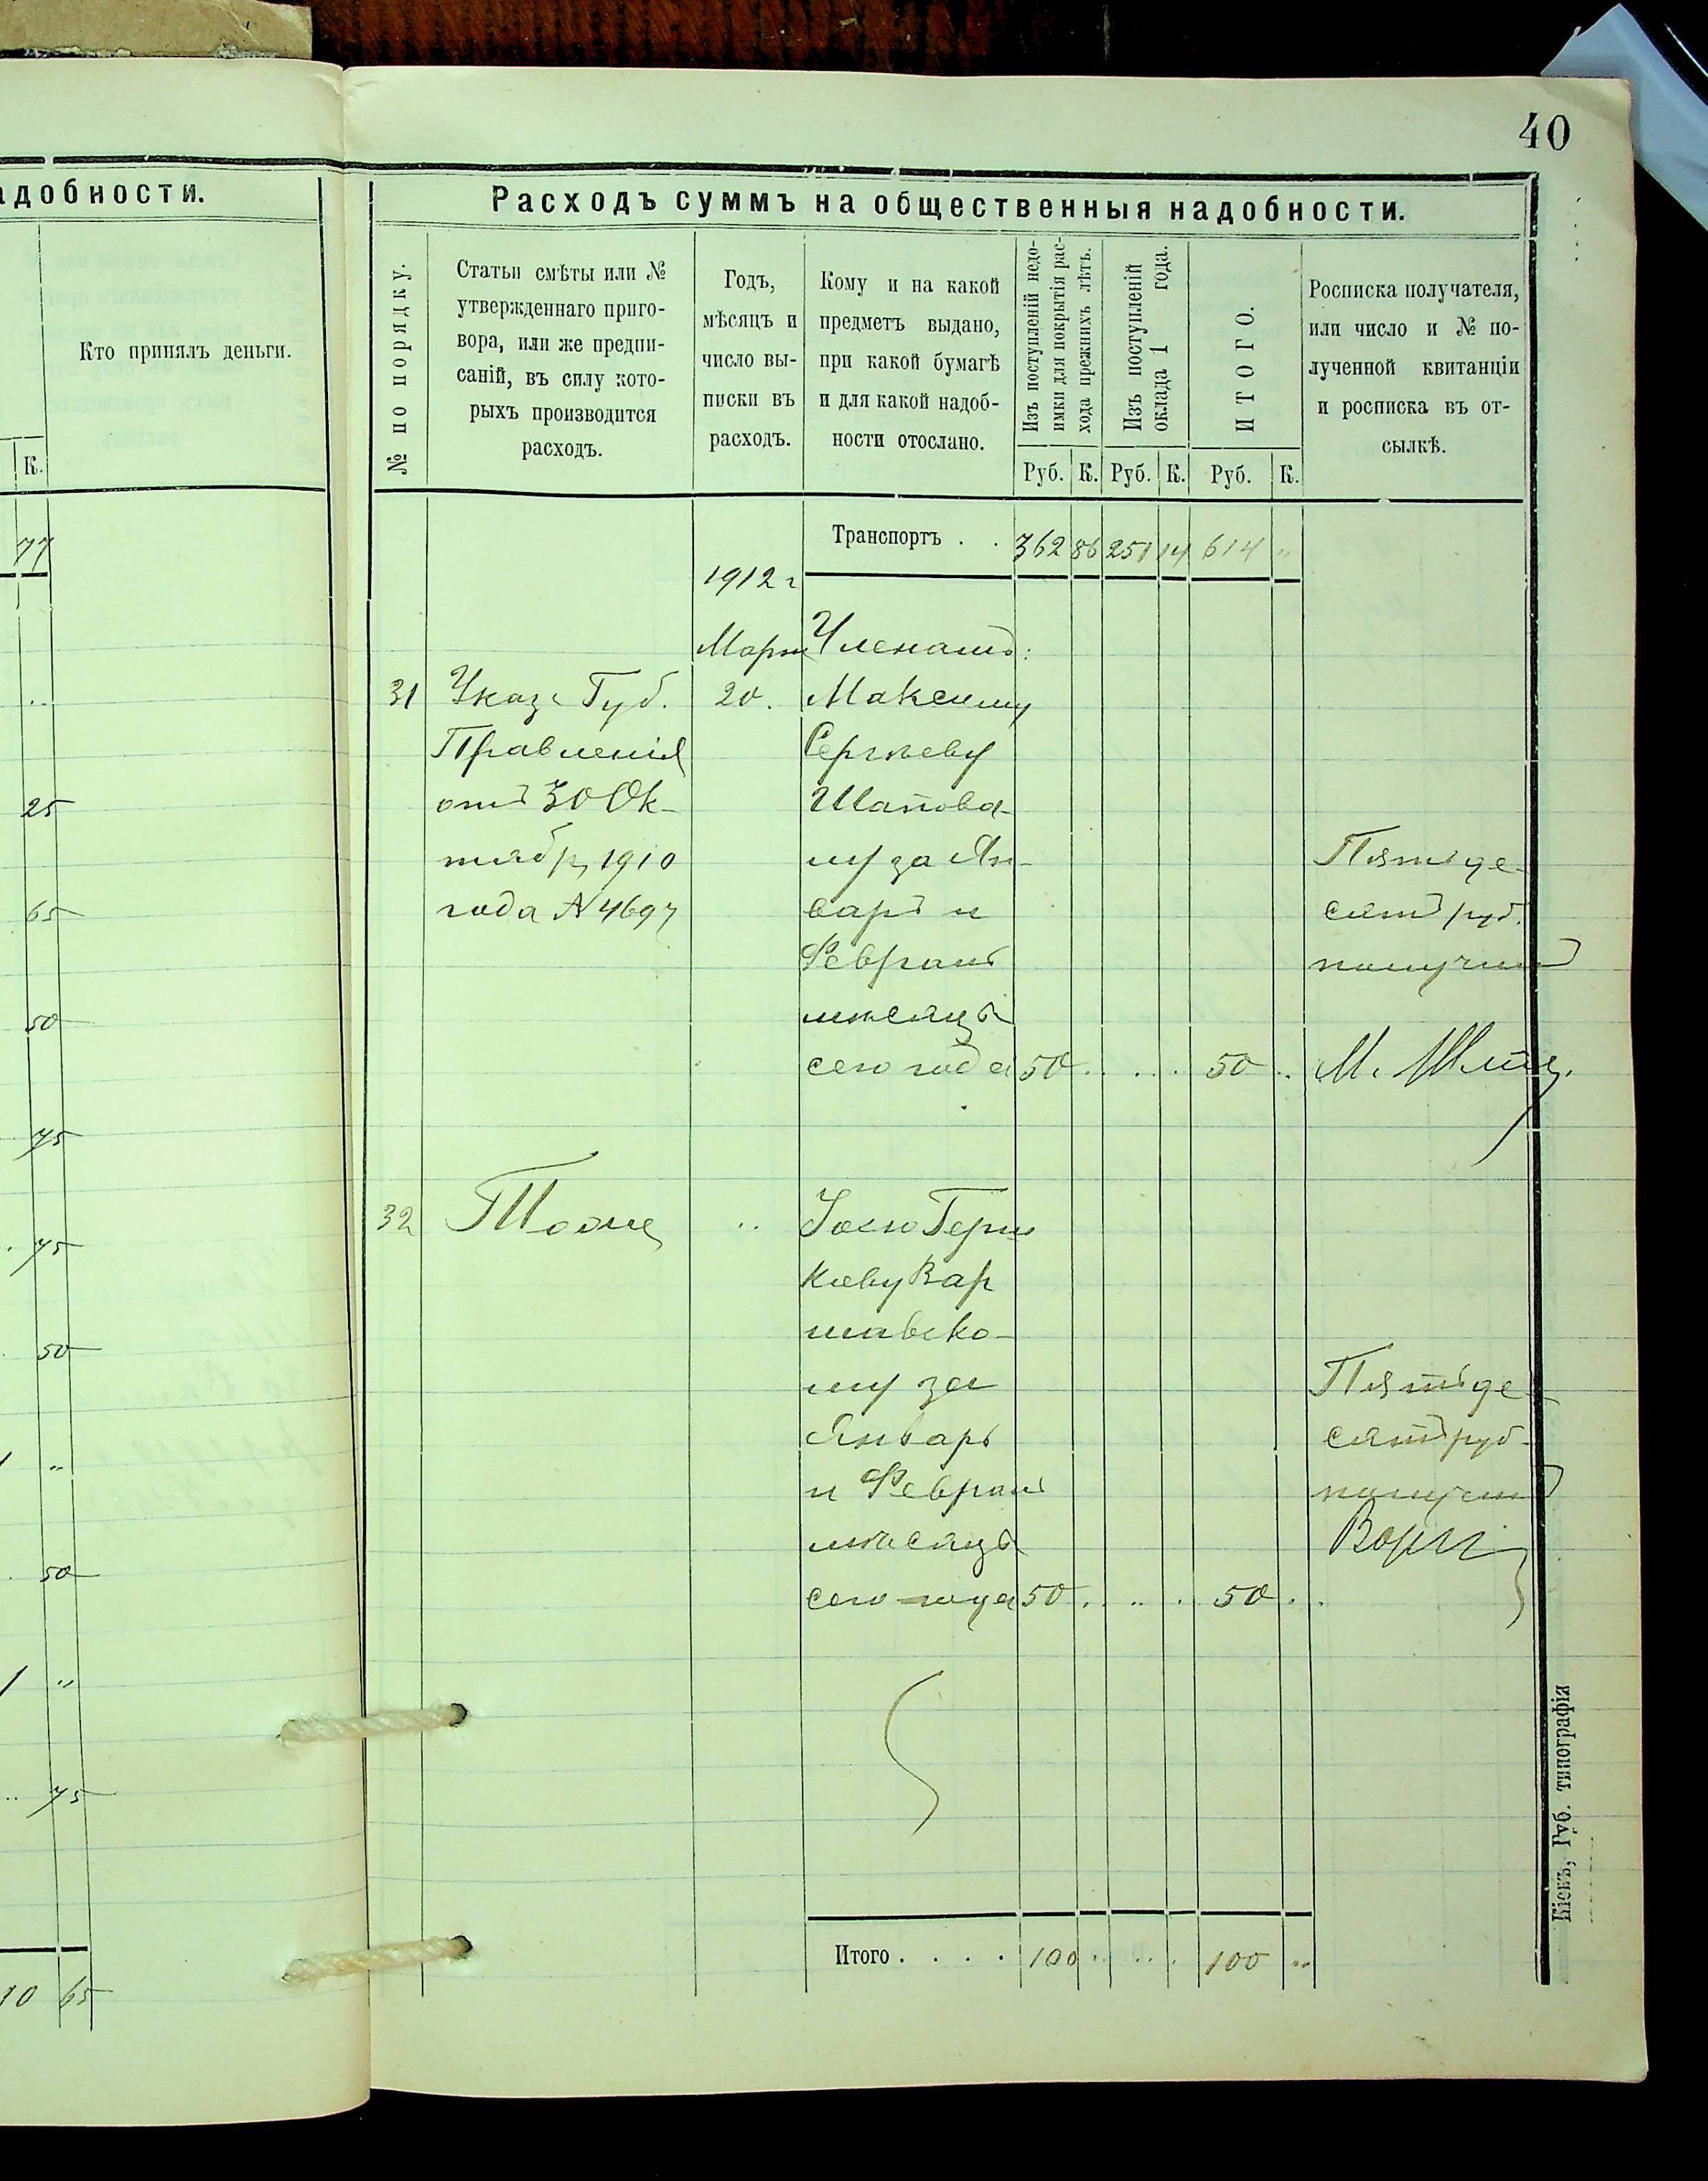 40
адобности.
Кто принялъ деньги.
К.
77
25
65
50
75
75
50
"
50
"
75
10 65
Расходъ суммъ на общественныя надобности.
№ по порядку.
Статьи смѣты или №
утвержденнаго приго-
вора, или же предпи-
саній, въ силу кото-
рыхъ производится
расходъ.
Годъ,
мѣсяцъ и
число вы-
писки въ
расходъ.
Кому и на какой
предметъ выдано,
при какой бумагѣ
и для какой надоб-
ности отослано.
Изъ поступленій недо-
имки для покрытія рас-
хода прежнихъ лѣтъ.
Изъ поступленій
оклада 1 года.
ИТОГО.
Росписка получателя,
или число и № по-
лученной квитанціи
и росписка въ от-
сылкѣ.
Руб. К. Руб. К. Руб. К.
Транспортъ . . 362 86 251 14 614 "
1912 г
Марта
20.
31
Указ Губ.
Правленія
отъ 30 Ок-
тября 1910
года № 4697
Членамъ:
Максиму
Сергѣеву
Шапова-
лу за Ян-
варь и
Февраль
мѣсяцы
сего года 50 . . . . 50 ..
Пятьде-
сятъ руб.
получилъ
М.
32
Тоже
..
Герш
кову Вар
шавско-
му за
Январь
и Февраль
мѣсяцы
сего года 50 . .. . 50 . .
Пятьде-
сятъ руб.
получилъ
Итого . . . . 100 .. .. . 100 ..
Кіевъ, Губ. типографія